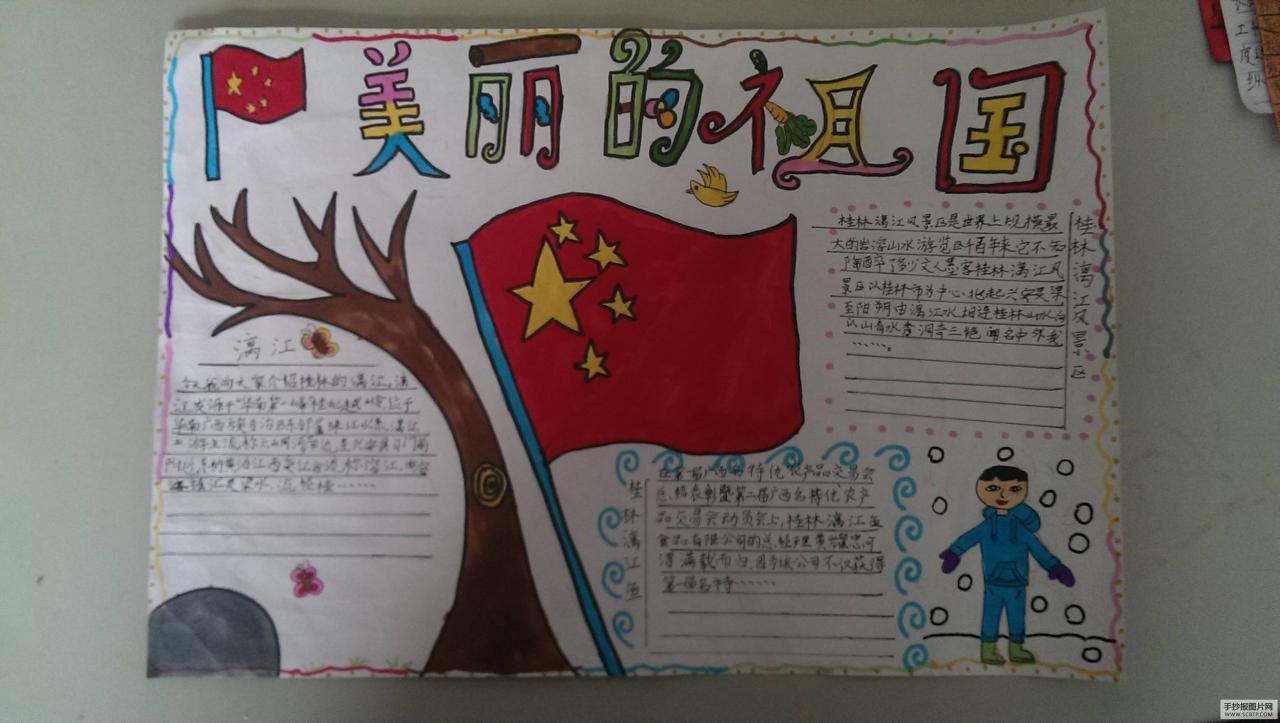 美丽的祖国
桂林漓江风景区
桂林漓江风景区是世界上规模最
大的岩溶山水游览区千百年来它不知
陶醉了多少文人墨客桂林漓江风
景区以桂林市为中心,北起兴安灵渠
至阳朔由漓江水相连桂林山水向
以山青水秀洞奇三绝闻名中外我
……。
漓江
今天我向大家介绍桂林的漓江,漓
江发源于"华南第一峰"桂北越城岭位于
华南广西壮族自治区东部属珠江水系,漓江
上游主流称六洞河
桂林漓江鱼
在第一届广西名特优农产品交易会
总结表彰暨第二届广西名特优农产
品交易会动员会上,桂林漓江鱼
食品有限公司的总经理黄耀忠可
谓满载而归,因为该公司不仅获得
第一届名特……
手抄报图片网
WWW.SCBTP.COM